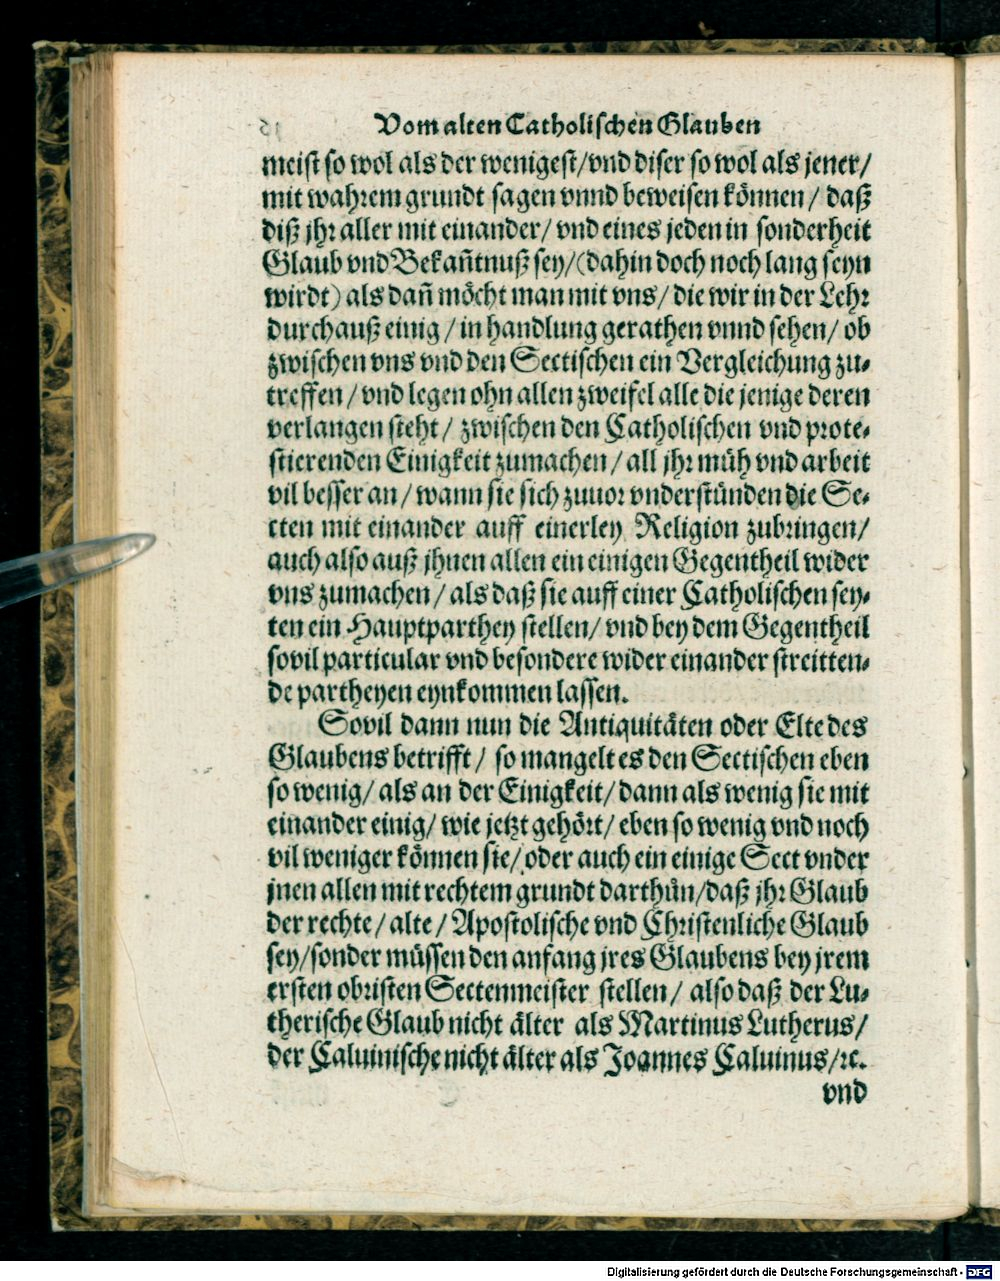 Vom alten Catholischen Glauben
meist so wol als der wenigest/vnd diser so wol als jener/
mit wahrem grundt sagen vnnd beweisen können/ daß
diß jhr aller mit einander/ vnd eines jeden in sonderheit
Glaub vnd Bekañtnuß sey/(dahin doch noch lang seyn
wirdt) als dañ möcht man mit vns/ die wir in der Lehr
durchauß einig/ in handlung gerathen vnnd sehen/ ob
zwischen vns vnd den Sectischen ein Vergleichung zu-
treffen/ vnd legen ohn allen zweifel alle die jenige deren
verlangen steht/ zwischen den Catholischen vnd prote-
stierenden Einigkeit zumachen/ all jhr müh vnd arbeit
vil besser an/ wann sie sich zuuor vnderstünden die Se-
cten mit einander auff einerley Religion zubringen/
auch also auß jhnen allen ein einigen Gegentheil wider
vns zumachen/ als daß sie auff einer Catholischen sey-
ten ein Hauptparthey stellen/ vnd bey dem Gegentheil
souil particular vnd besondere wider einander streitten-
de partheyen eynkommen lassen.
Souil dann nun die Antiquitäten oder Elte des
Glaubens betrifft/ so mangelt es den Sectischen eben
so wenig/ als an der Einigkeit/ dann als wenig sie mit
einander einig/ wie jetzt gehört/ eben so wenig vnd noch
vil weniger können sie/ oder auch ein einige Sect vnder
jnen allen mit rechtem grundt darthůn/daß jhr Glaub
der rechte/ alte/ Apostolische vnd Christenliche Glaub
sey/sonder müssen den anfang jres Glaubens bey jrem
ersten obristen Sectenmeister stellen/ also daß der Lu-
therische Glaub nicht älter als Martinus Lutherus/
der Caluinische nicht älter als Joannes Caluinus/ꝛc.
vnd
Digitalisierung gefördert durch die Deutsche Forschungsgemeinschaft - DFG